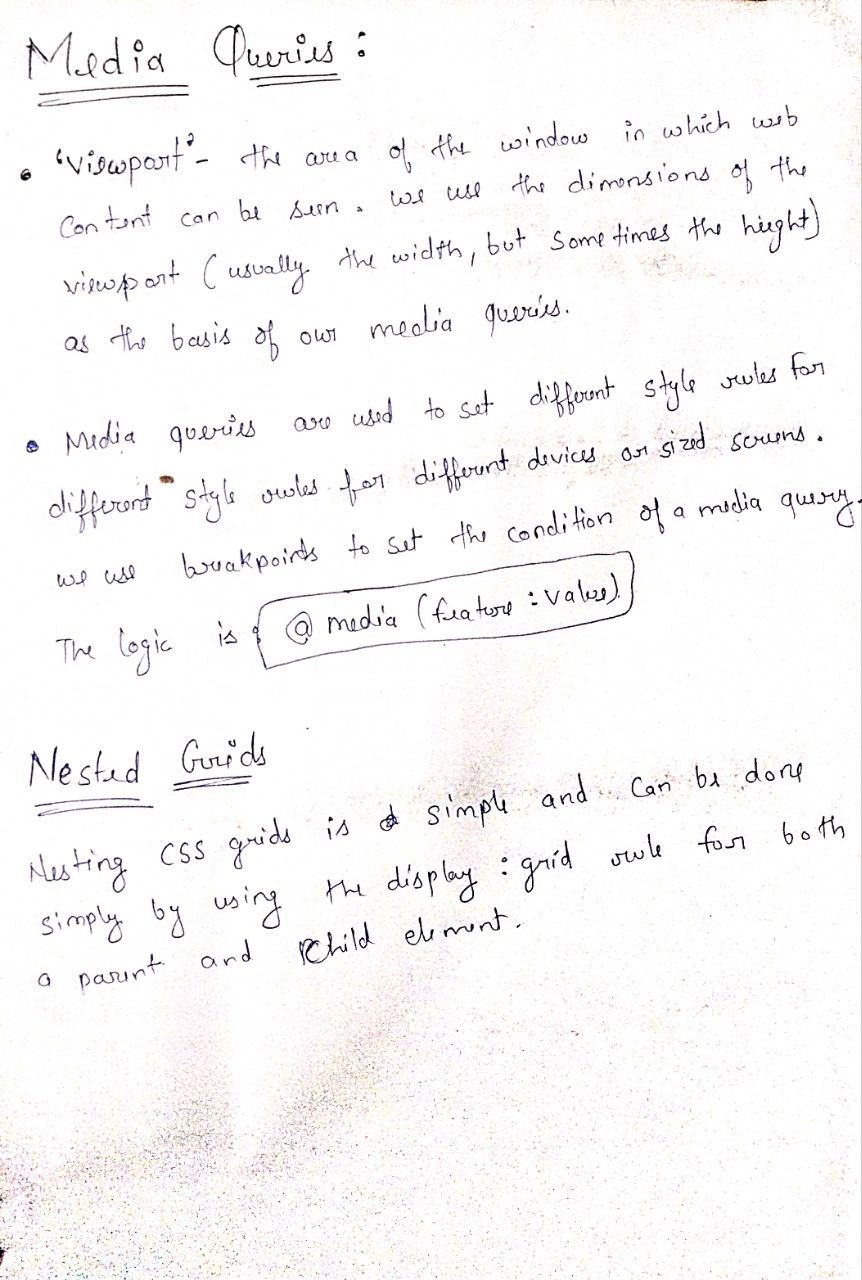 Media Queries :
• 'viewport' - the area of the window in which web
content can be seen. we use the dimensions of the
viewport (usually the width, but some times the hieght)
as the basis of our media queries.
• Media queries are used to set different style rules for
different style rules for different devices or sized screens.
we use breakpoints to set the condition of a media query.
The logic is { @ media (feature : value)
Nested Grids
Nesting CSS grids is simple and can be done
simply by using the display : grid rule for both
a parent and child element.